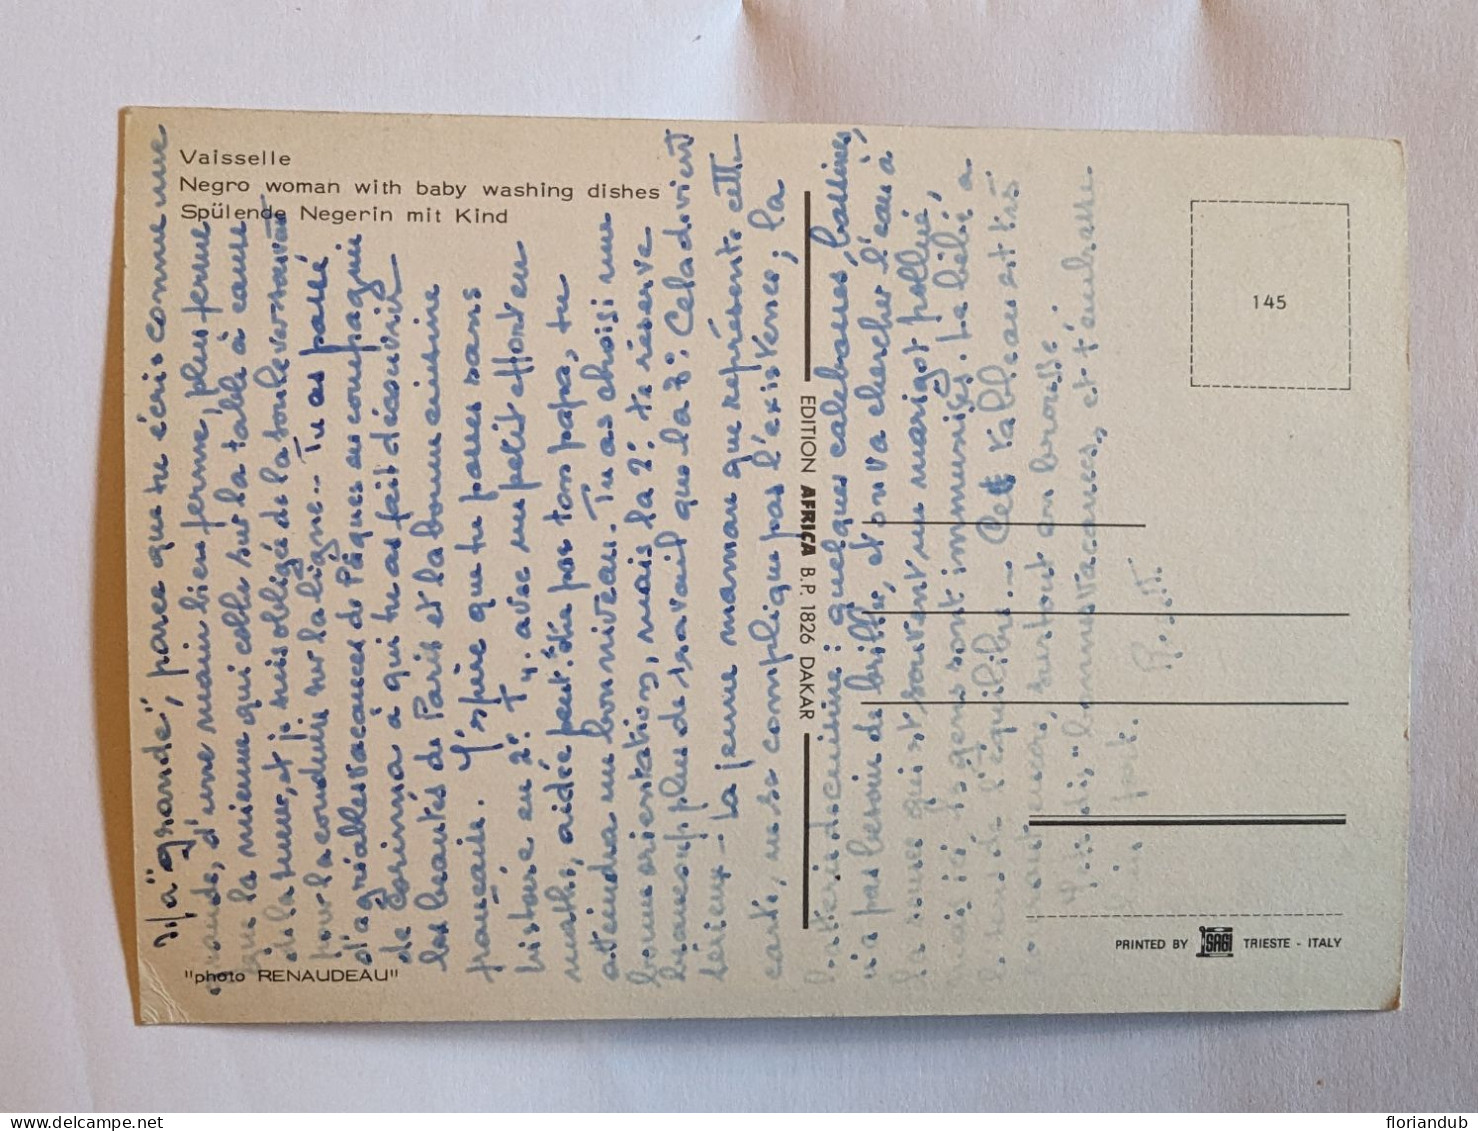 Vaisselle
Negro woman with baby washing dishes
Spülende Negerin mit Kind
"photo RENAUDEAU"
EDITION AFRICA B.P. 1826 DAKAR
145
PRINTED BY SAGI TRIESTE - ITALY
"grande", parce que tu écris comme une
grande, d'une main bien ferme, plus ferme
que la mienne qui colle sur la table à cause
de la sueur, et je suis obligée de la soulever souvent
pour la conduire sur la ligne... Tu as passé
d'agréables vacances de Pâques en compagnie
de Corinna à qui tu as fait découvrir
les beautés de Paris et la bonne cuisine
française. J'espère que tu passes sans
histoire en 2e T4. avec un petit effort en
maths, aidée peut-être par ton papa, tu
atteindras un bon niveau. Tu as choisi une
bonne orientation, mais la 2e te réserve
beaucoup plus de travail que la 3e. Cela devient
sérieux - La jeune maman que représente cette
carte, ne se complique pas l'existence ; la
batterie de cuisine : quelques calebasses, bassines,
n'a pas besoin de briller, et on va chercher l'eau à
la source qui est souvent un marigot pollué,
mais ici les gens sont immunisés. Le bébé a
le sens de l'équilibre... Cet tableau est très
surtout en brousse.
bonnes vacances, et t'embrasse
bien fort.
floriandub